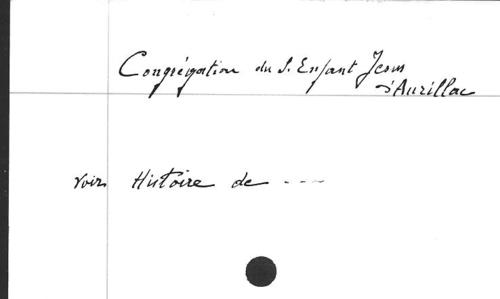 Congrégation du S. Enfant Jesus
d'Aurillac
voir Histoire de ---